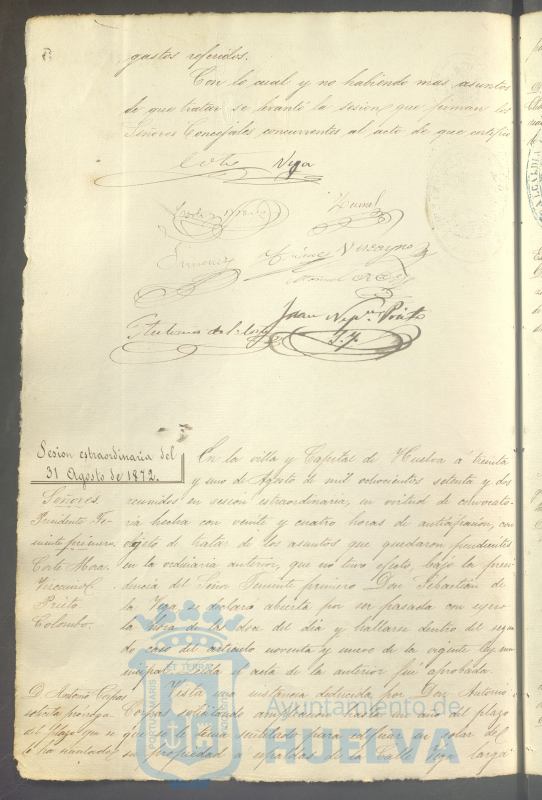 gastos referidos.
Con lo cual y no habiendo mas asuntos
de que tratar se levantó la sesion, que firman los
Señores Concejales concurrentes al acto de que certifico
Vega
Juan Nep.º Prieto
Sesion estraordinaria del
31 Agosto de 1872.
Señores
Presidente Te-
niente primero.
Corte Mora.
Vizcaino
Prieto
Colombo.
En la villa y Capital de Huelva á treinta
y uno de Agosto de mil ochocientos setenta y dos
reunidos en sesion estraordinaria, en virtud de convocato-
ria hecha con veinte y cuatro horas de anticipacion, con
objeto de tratar de los asuntos que quedaron pendientes
en la ordinaria anterior, que no tuvo efecto, bajo la presi-
dencia del Señor Teniente primero Don Sebastian de
la Vega, se declaró abierta por ser pasada con esceso
la hora de las doce del dia y hallarse dentro del segun-
do caso del articulo noventa y nueve de la vigente ley mu-
nicipal. Leida el acta de la anterior fué aprobada.
D. Antonio
solicita prórroga
del plazo que se
le ha señalado
Vista una instancia deducida por Don Antonio
solicitando ampliacion hasta un año del plazo
que se le tenia señalado para edificar un solar de
su propiedad á espaldas de la Calle
Ayuntamiento de
HUELVA